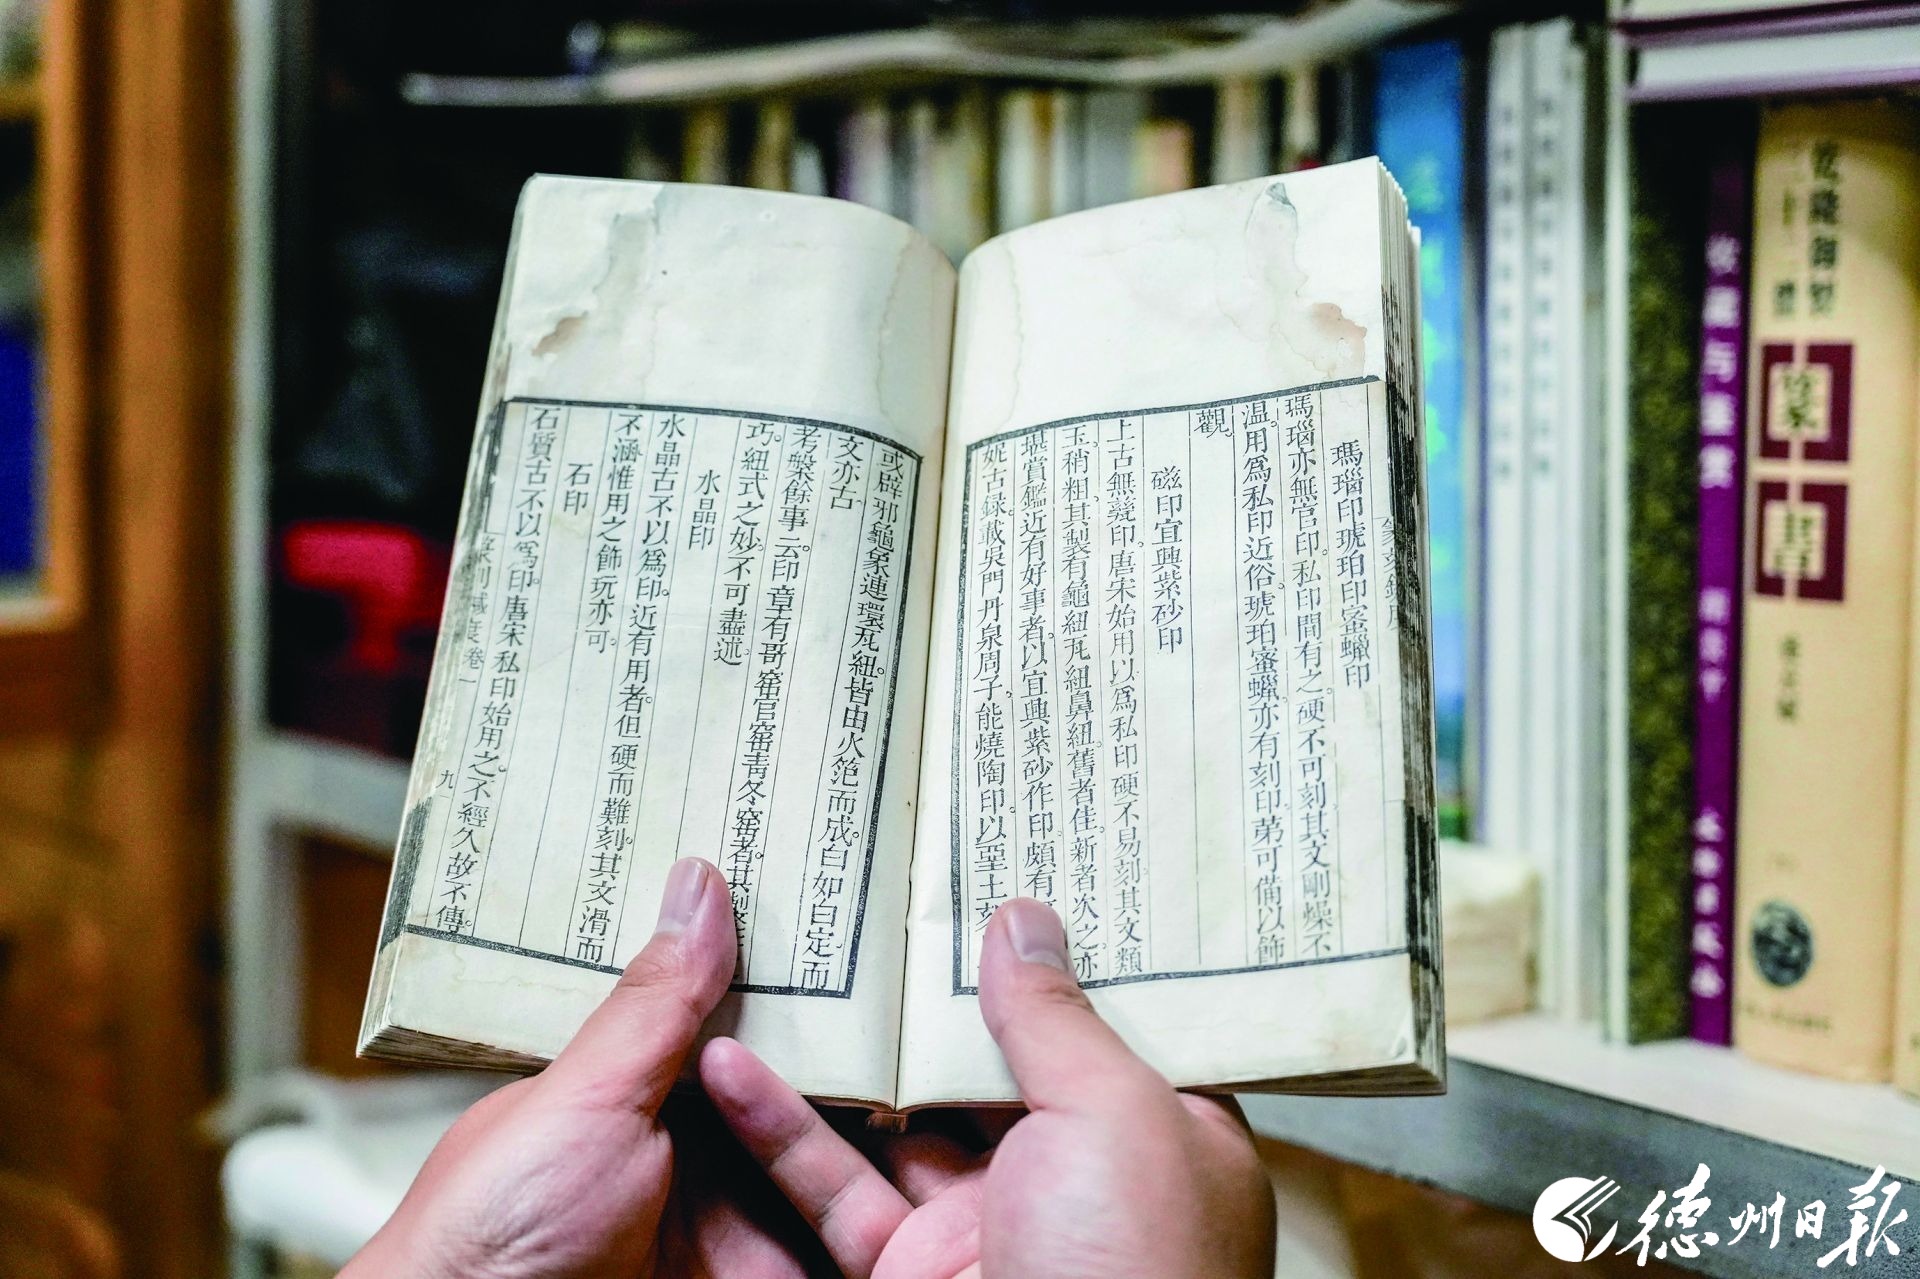 瑪瑙印琥珀印蜜蠟印
瑪瑙亦無官印。私印間有之。硬不可刻。其文剛燥不
温。用爲私印近俗。琥珀蜜蠟亦有刻印。苐可備以飾
觀。
磁印宜興紫砂印
上古無甆印。唐宋始用以爲私印。硬不易刻。其文類
玉。稍粗。其製有龜紐瓦紐鼻紐。舊者佳。新者次之。亦
堪賞鑑。近有好事者。以宜興紫砂作印。頗有
妮古録。載吳門丹泉周子。能燒陶印。以堊土刻
或辟邪龜象連環瓦紐。皆由火笵而成。白如白定。而
文亦古。
考槃餘事云。印章有哥窰官窰青冬窰者。其製
巧。紐式之妙。不可盡述。
水晶印
水晶古不以爲印。近有用者。但硬而難刻。其文滑而
不涵。惟用之飾玩亦可。
石印
石質古不以爲印。唐宋私印始用之。不經久。故不傳。
篆刻鍼度卷一
九
收藏与鉴赏
乾隆御製
三十二體
篆書
德州日报